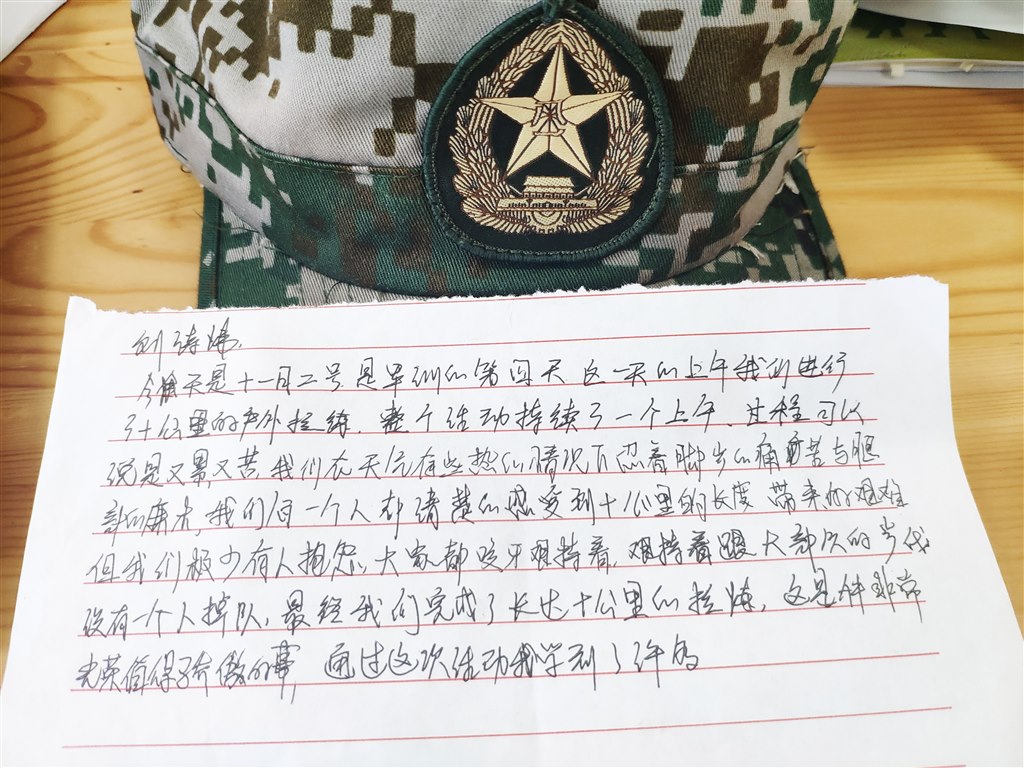 八一
刘诗炜
今天是十一月二号是军训的第四天这一天的上午我们进行
了十公里的户外拉练,整个活动持续了一个上午、过程可以
说是又累又苦,我们在天气有些热的情况下忍着脚步的痛苦与腿
部的麻木,我们每一个人都清楚的感受到十公里的长度带来的艰难
但我们极少有人抱怨、大家都咬牙艰持着,艰持着跟大部队的步伐
没有一个人掉队,最终我们完成了长达十公里的拉炼,这是件非常
光荣值得骄傲的事,通过这次活动我学到了许多